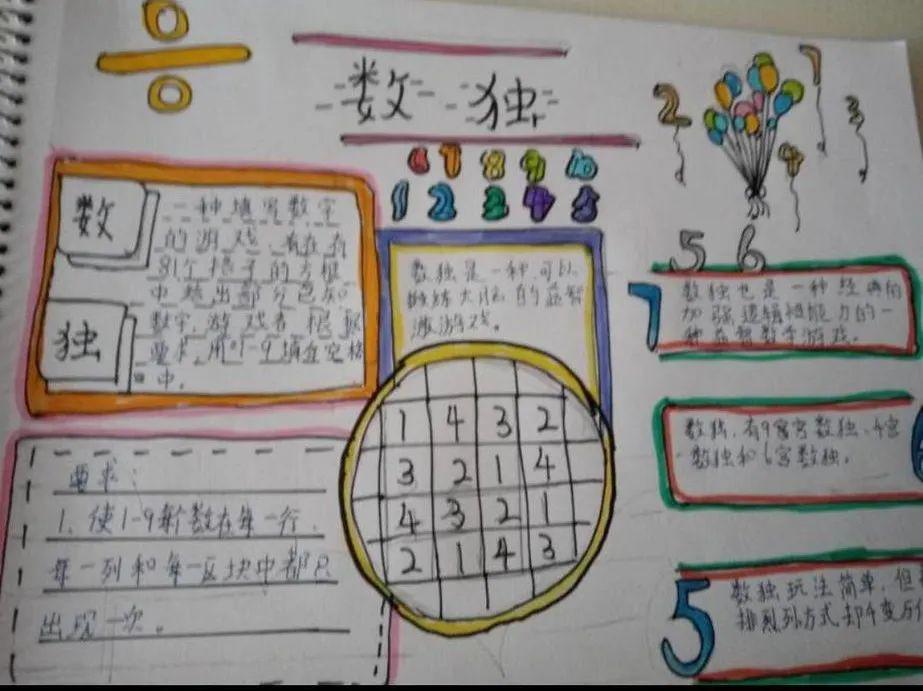 数独
6 7 8 9 10
1 2 3 4 5
2
7
3
4
5 6
数
独
一种填写数字
的游戏,有在有
81个格子的方框
中给出部分已知
数字,游戏者根据
要求,用1-9填在空格
中。
数独是一种可以
锻炼大脑的益智
游戏。
7
数独也是一种经典的
加强逻辑能力的一
种益智数字游戏。
数独,有9宫宫数独、4宫
数独和6宫数独。
5
数独玩法简单,但
排列方式却千变万
1 4 3 2
3 2 1 4
4 3 2 1
2 1 4 3
要求:
1、使1-9每个数在每一行、
每一列和每一区块中都只
出现一次。